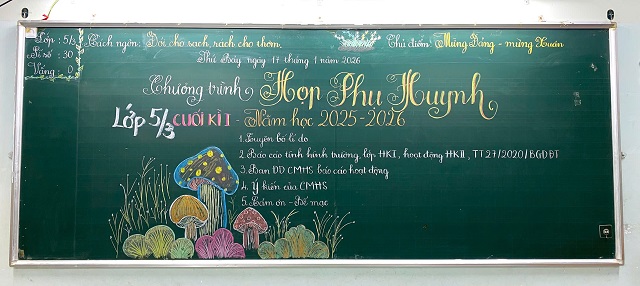 Lớp : 5/3
Sĩ số : 30
Vắng : 0
Cách ngôn: Đói cho sạch, rách cho thơm.
Chủ điểm: Mừng Đảng - mừng Xuân
Thứ Bảy ngày 17 tháng 1 năm 2026
Chương trình Họp Phụ Huynh
Lớp 5/3 CUỐI KÌ I - Năm học 2025-2026
1. Tuyên bố lí do
2. Báo cáo tình hình trường, lớp HKI, hoạt động HKII, TT27/2020/BGDĐT
3. Ban DD CMHS báo cáo hoạt động
4. Ý kiến của CMHS
5. Cảm ơn - Bế mạc